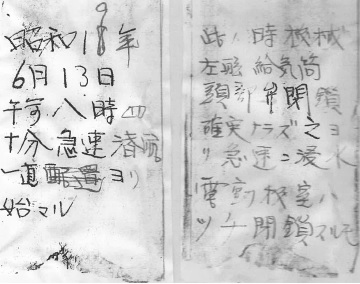 昭和18年
9
6月13日
午前八時四
十分急速潜航
一直配置ヨリ
始マル
此ノ時機械
左舷給気筒
頭部弁閉鎖
確実ナラズ之ヨ
リ急速ニ浸水
電動機室ハ
ッチ閉鎖スルモ